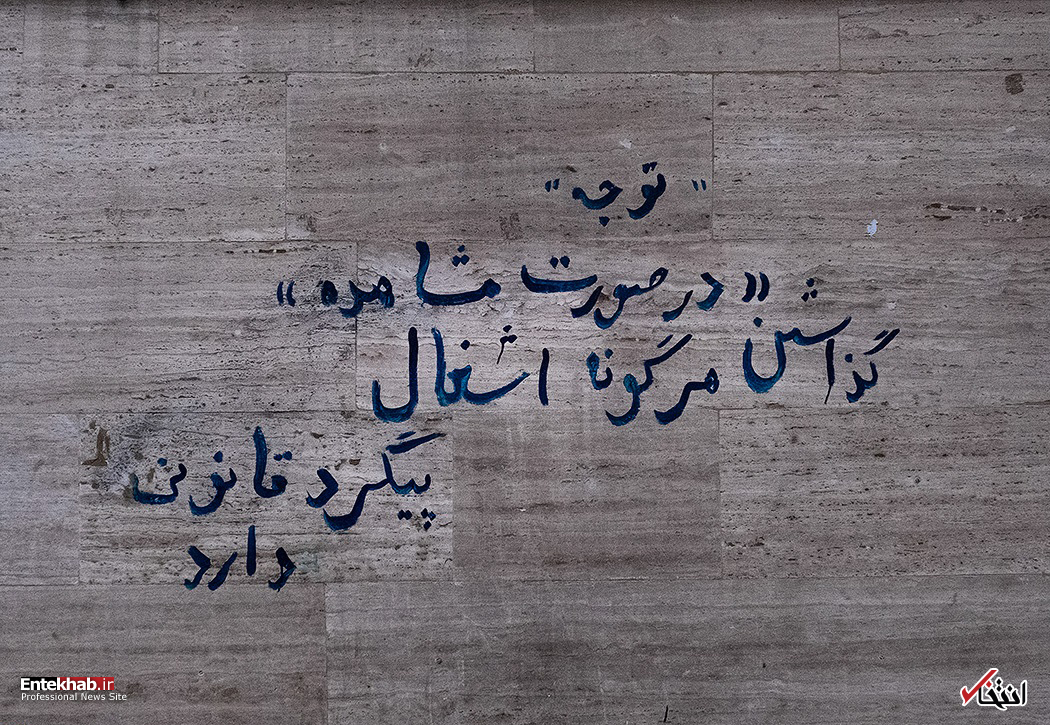 " توجه "
« در صورت مشاهده »
گذاشتن هرگونه اشغال
پیگرد قانونی
دارد
Entekhab.ir
Professional News Site
انتخاب